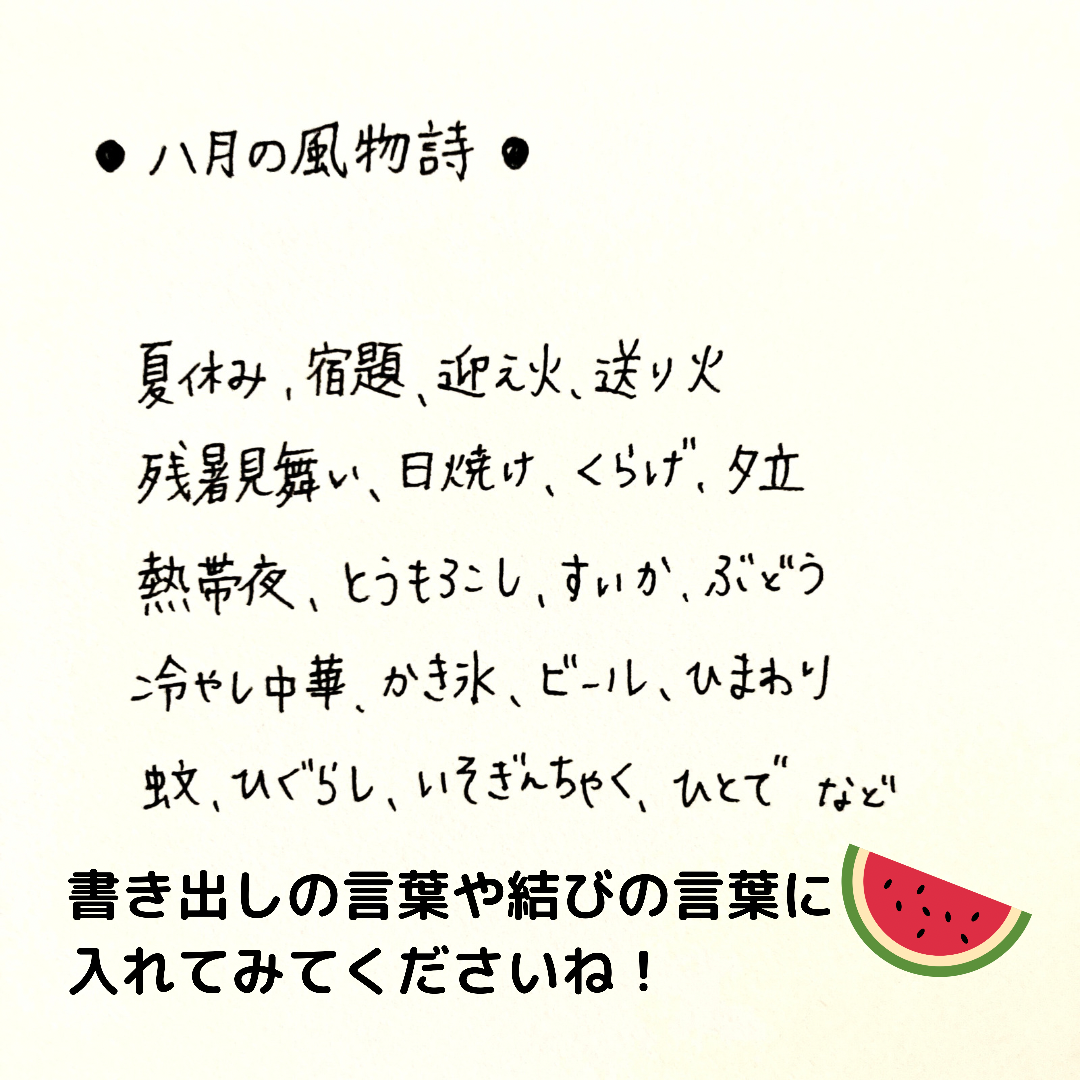 ● 八月の風物詩 ●
夏休み、宿題、迎え火、送り火
残暑見舞い、日焼け、くらげ、夕立
熱帯夜、とうもろこし、すいか、ぶどう
冷やし中華、かき氷、ビール、ひまわり
蚊、ひぐらし、いそぎんちゃく、ひとで など
書き出しの言葉や結びの言葉に
入れてみてくださいね！